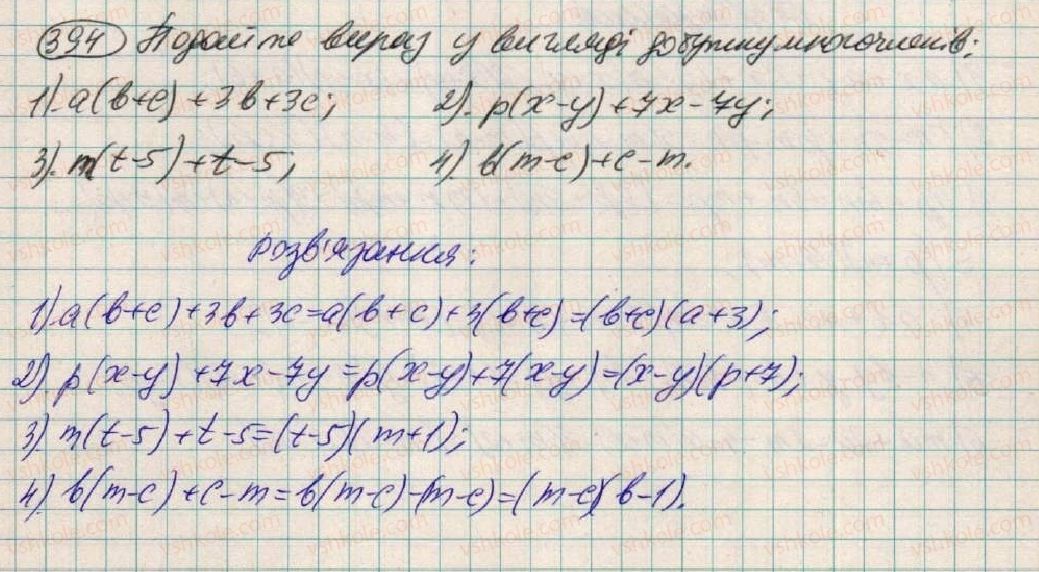 394 Подайте вираз у вигляді добутку многочленів:
1). a(b+c)+3b+3c; 2). p(x-y)+7x-7y;
3). m(t-5)+t-5; 4) b(m-c)+c-m.
Розв'язання:
1). a(b+c)+3b+3c=a(b+c)+3(b+c)=(b+c)(a+3);
2). p(x-y)+7x-7y=p(x-y)+7(x-y)=(x-y)(p+7);
3) m(t-5)+t-5=(t-5)(m+1);
4). b(m-c)+c-m=b(m-c)-(m-c)=(m-c)(b-1).